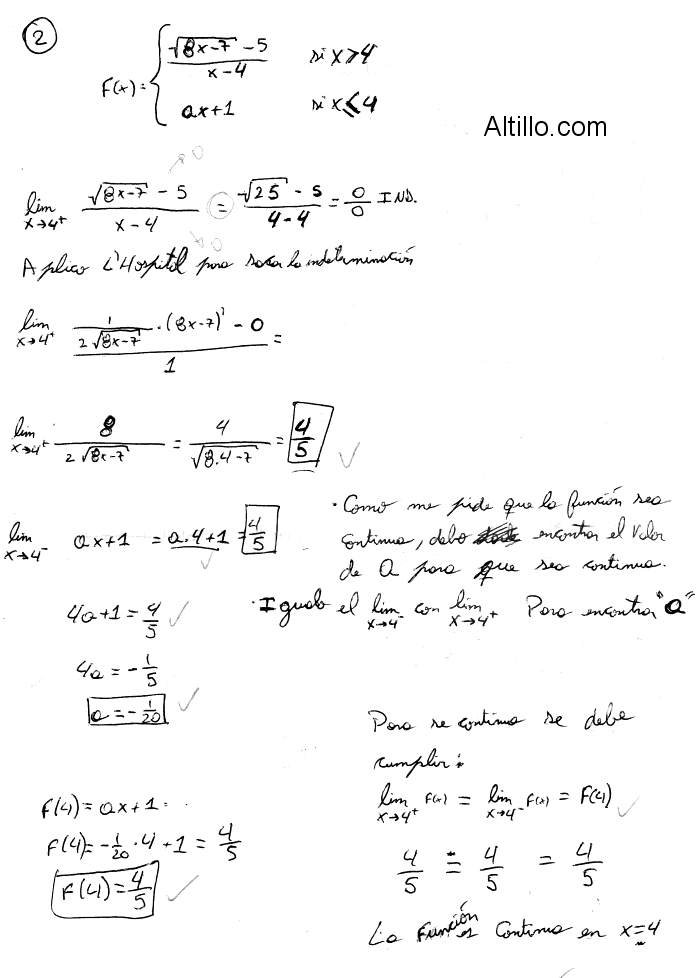 2
F(x)= { (√(8x-7) - 5)/(x-4) si x>4
ax+1 si x≤4
Altillo.com
lim x→4⁺ (√(8x-7) - 5)/(x-4) = (√25 - 5)/(4-4) = 0/0 IND.
→0
→0
Aplico L'Hospital para sacar la indeterminación
lim x→4⁺ (1/(2√(8x-7)) · (8x-7)' - 0)/1 =
lim x→4⁺ 8/(2√(8x-7)) = 4/√(8.4-7) = 4/5
lim x→4⁻ ax+1 = a.4+1 = 4/5
4a+1 = 4/5
4a = -1/5
a = -1/20
· Como me pide que la función sea
continua, debo encontrar el valor
de a para que sea continua.
· Igualo el lim x→4⁻ con lim x→4⁺ Para encontrar "a"
F(4) = ax+1
F(4) = -1/20 · 4 + 1 = 4/5
F(4) = 4/5
Para se continua se debe
cumplir:
lim x→4⁺ F(x) = lim x→4⁻ F(x) = F(4)
4/5 = 4/5 = 4/5
La Función es Continua en x=4